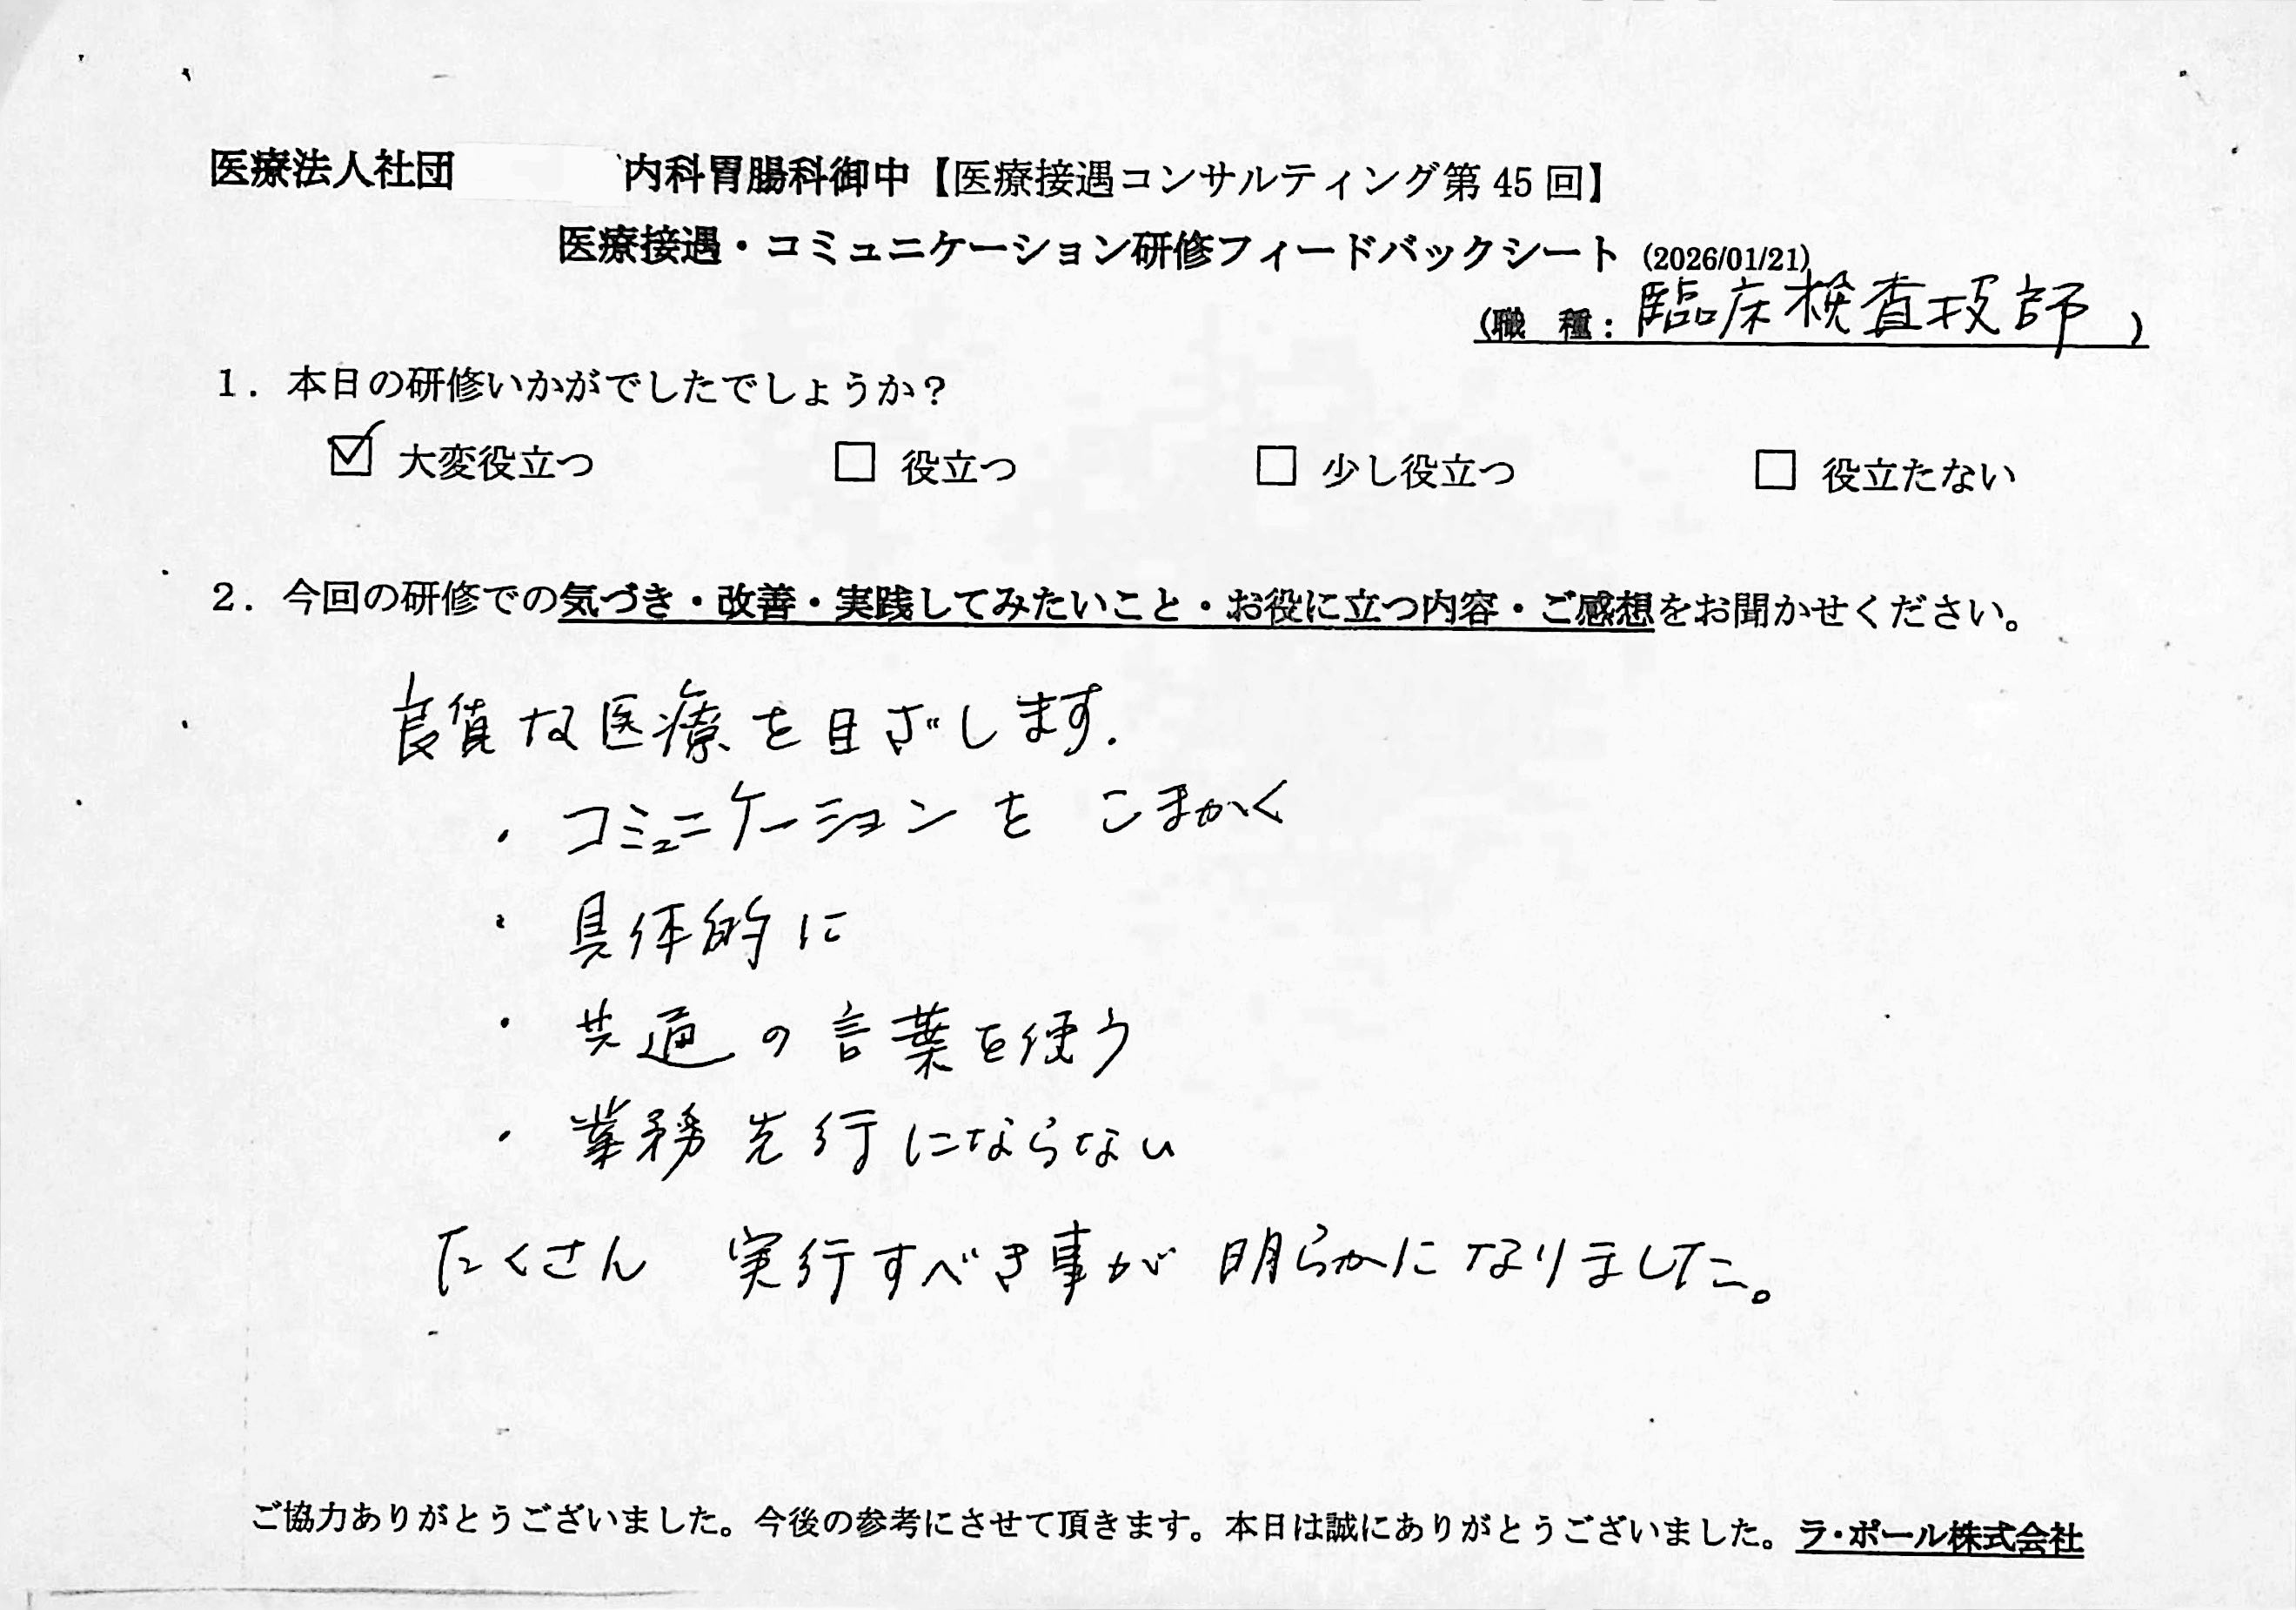 医療法人社団 内科胃腸科御中【医療接遇コンサルティング第 45 回】
医療接遇・コミュニケーション研修フィードバックシート (2026/01/21)
(職 種:臨床検査技師)
1. 本日の研修いかがでしたでしょうか?
☑ 大変役立つ □ 役立つ □ 少し役立つ □ 役立たない
2. 今回の研修での気づき・改善・実践してみたいこと・お役に立つ内容・ご感想をお聞かせください。
良質な医療を目ざします.
・コミュニケーションを こまかく
・具体的に
・共通の言葉を使う
・業務先行にならない
たくさん 実行すべき事が 明らかになりました。
ご協力ありがとうございました。今後の参考にさせて頂きます。本日は誠にありがとうございました。ラ・ポール株式会社